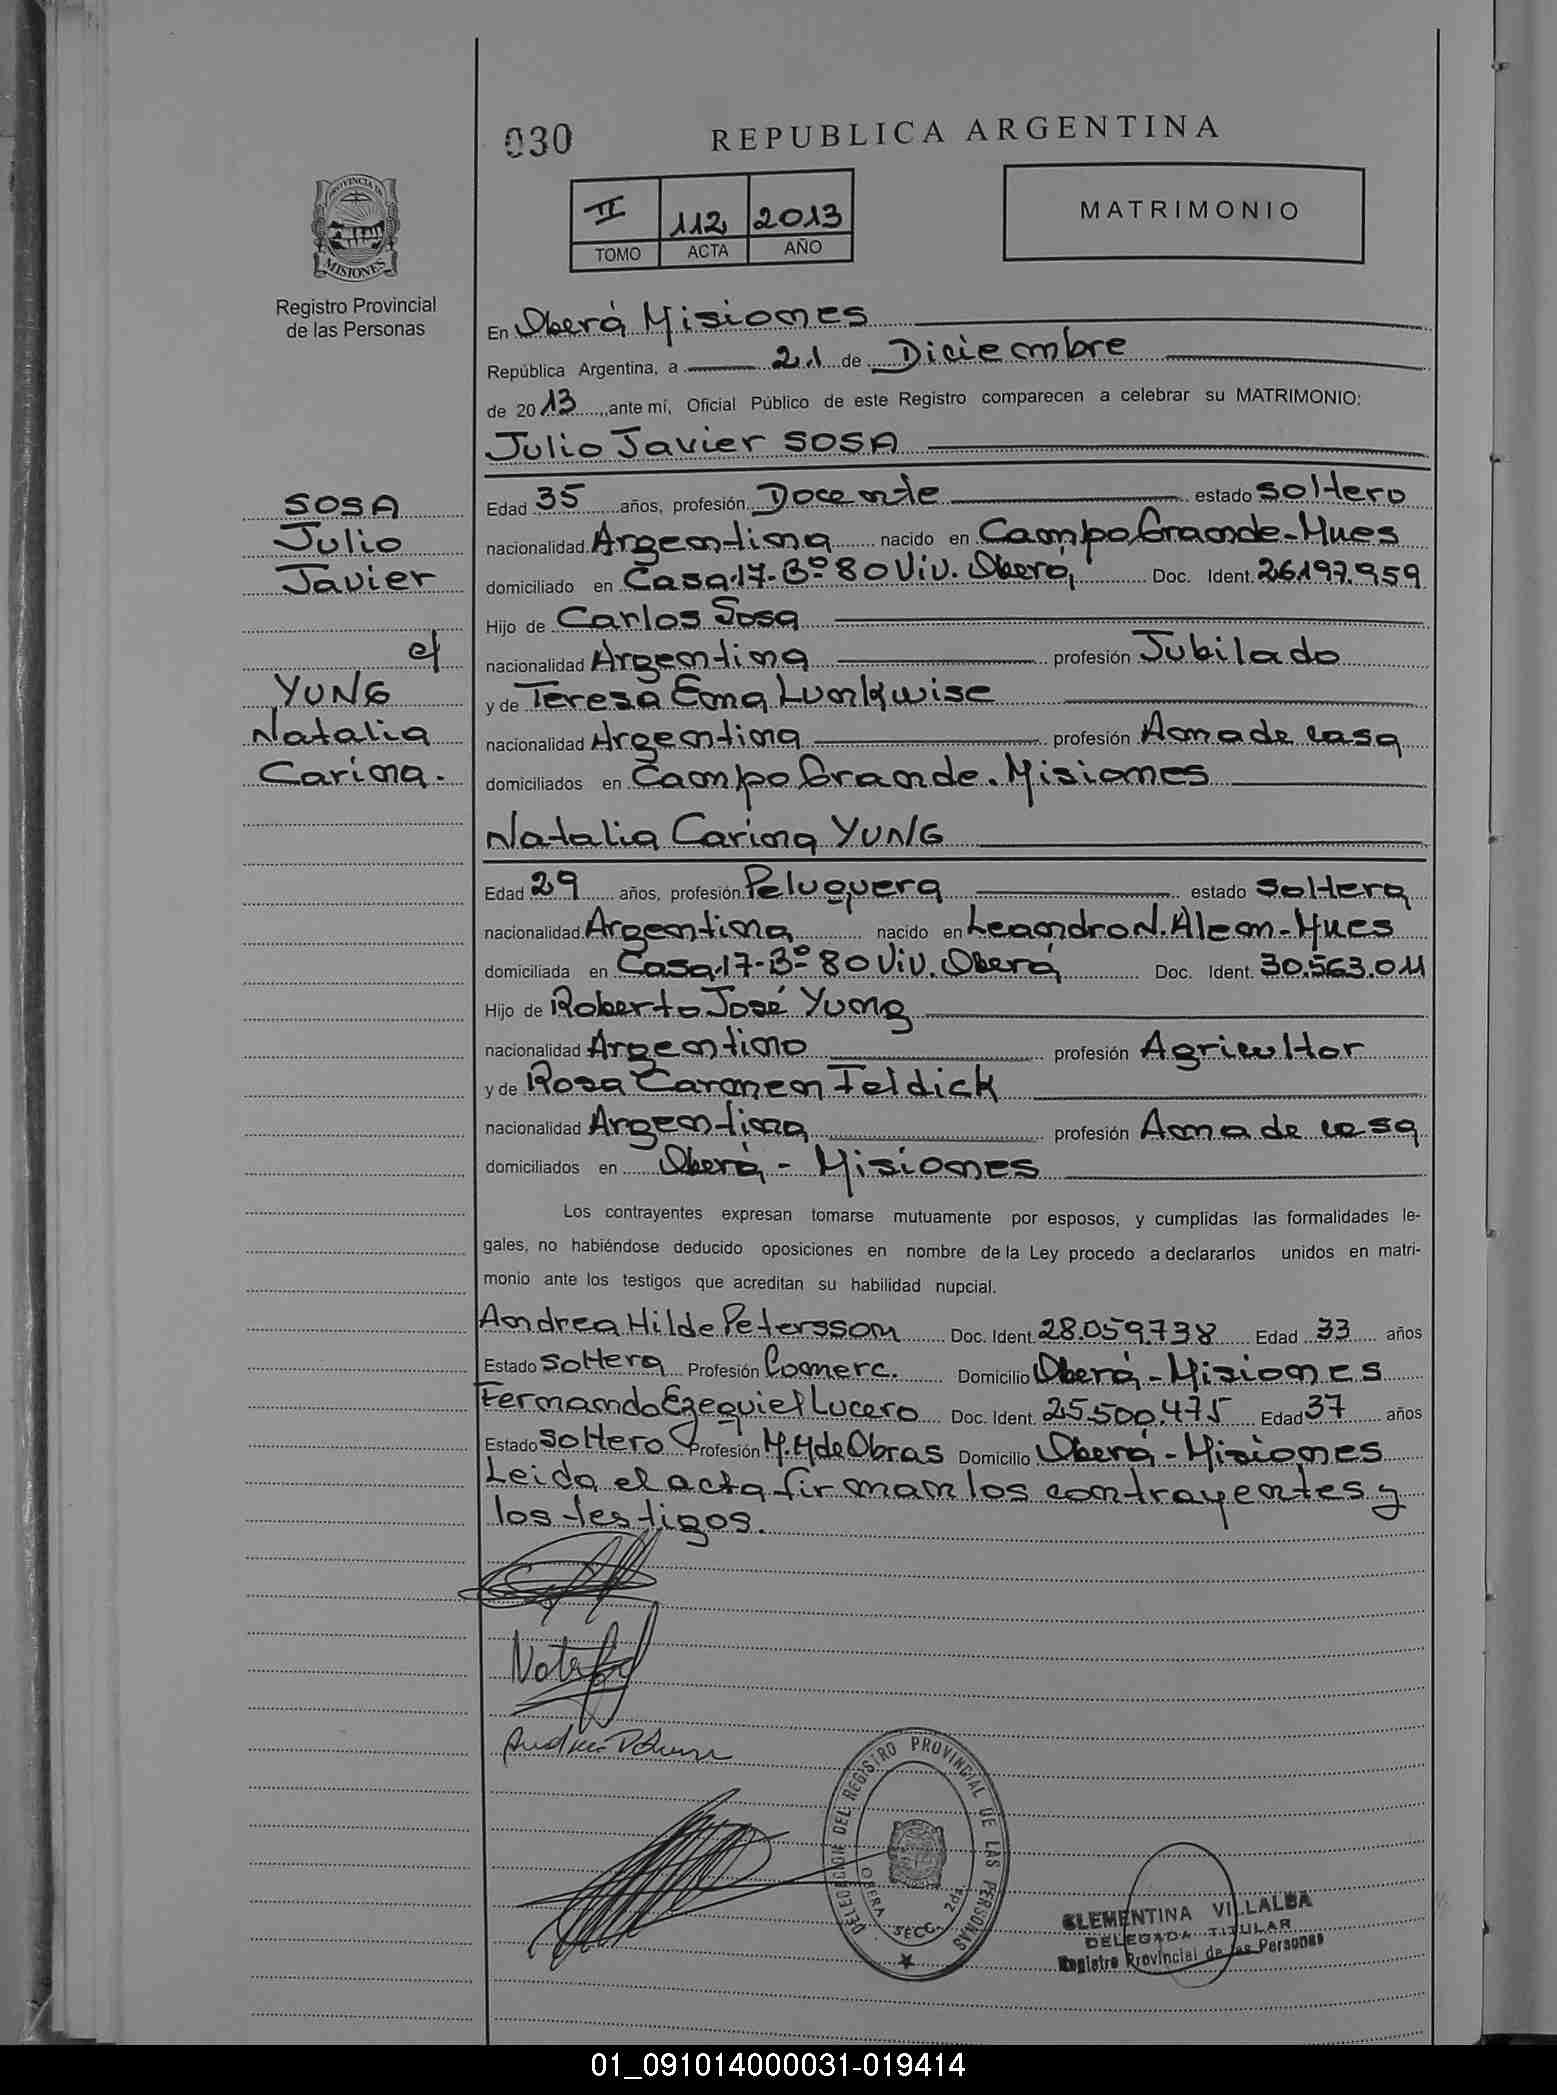 030 REPUBLICA ARGENTINA
II 112 2013 MATRIMONIO
TOMO ACTA AÑO
PROVINCIA DE
MISIONES
Registro Provincial
de las Personas
En Oberá Misiones
República Argentina, a 21 de Diciembre
de 2013, ante mí, Oficial Público de este Registro comparecen a celebrar su MATRIMONIO:
Julio Javier SOSA
SOSA
Julio
Javier
c/
YUNG
Natalia
Carina.
Edad 35 años, profesión Docente estado soltero
nacionalidad Argentina nacido en Campo Grande-Mnes
domiciliado en Casa 17-Bº 80 Viv. Oberá Doc. Ident. 26.197.959
Hijo de Carlos Sosa
nacionalidad Argentina profesión Jubilado
y de Teresa Ema Lunkwise
nacionalidad Argentina profesión Ama de casa
domiciliados en Campo Grande. Misiones
Natalia Carina YUNG
Edad 29 años, profesión Peluquera estado soltera
nacionalidad Argentina nacido en Leandro N. Alem-Mnes
domiciliada en Casa 17-Bº 80 Viv. Oberá Doc. Ident. 30.563.011
Hijo de Roberto José Yung
nacionalidad Argentino profesión Agricultor
y de Rosa Carmen Feldick
nacionalidad Argentina profesión Ama de casa
domiciliados en Oberá - Misiones
Los contrayentes expresan tomarse mutuamente por esposos, y cumplidas las formalidades le-
gales, no habiéndose deducido oposiciones en nombre de la Ley procedo a declararlos unidos en matri-
monio ante los testigos que acreditan su habilidad nupcial.
Andrea Hilde Petersson Doc. Ident. 28.059.738 Edad 33 años
Estado soltera Profesión Comerc. Domicilio Oberá - Misiones
Fernando Ezequiel Lucero Doc. Ident. 25.500.475 Edad 37 años
Estado soltero Profesión M.M de Obras Domicilio Oberá - Misiones
Leida el acta firman los contrayentes y
los testigos.
DELEGACION DEL REGISTRO PROVINCIAL DE LAS PERSONAS
OBERA SECC. 2da
CLEMENTINA VILLALBA
DELEGADA TITULAR
Registro Provincial de las Personas
01_091014000031-019414